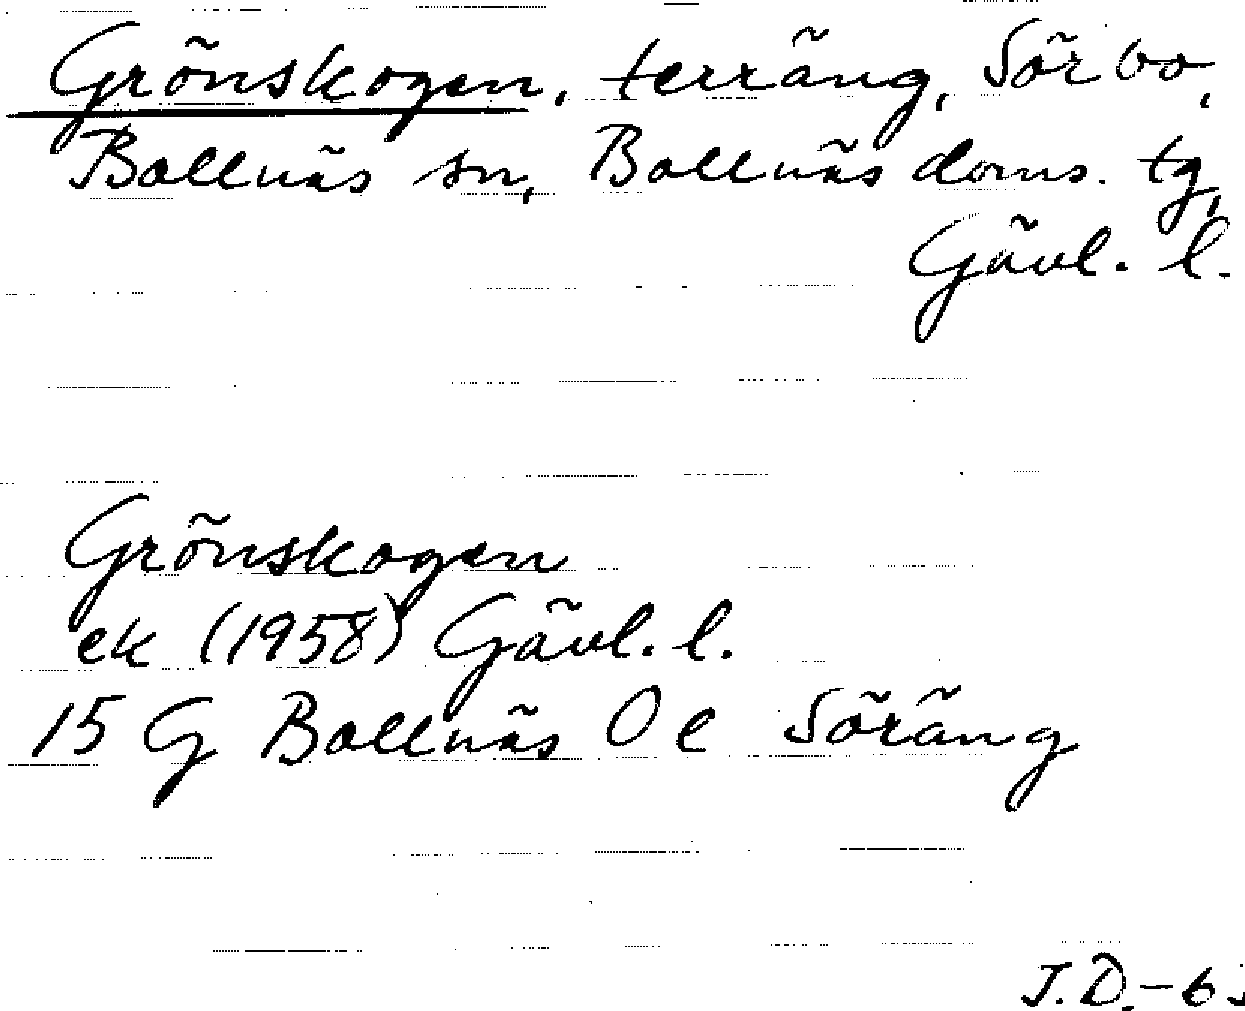 Grönskogen, terräng, Sörbo,
Bollnäs sn, Bollnäs doms. tg,
Gävl. l.
Grönskogen
ek (1958) Gävl. l.
15 G Bollnäs 0 e Söräng
J.D.-6